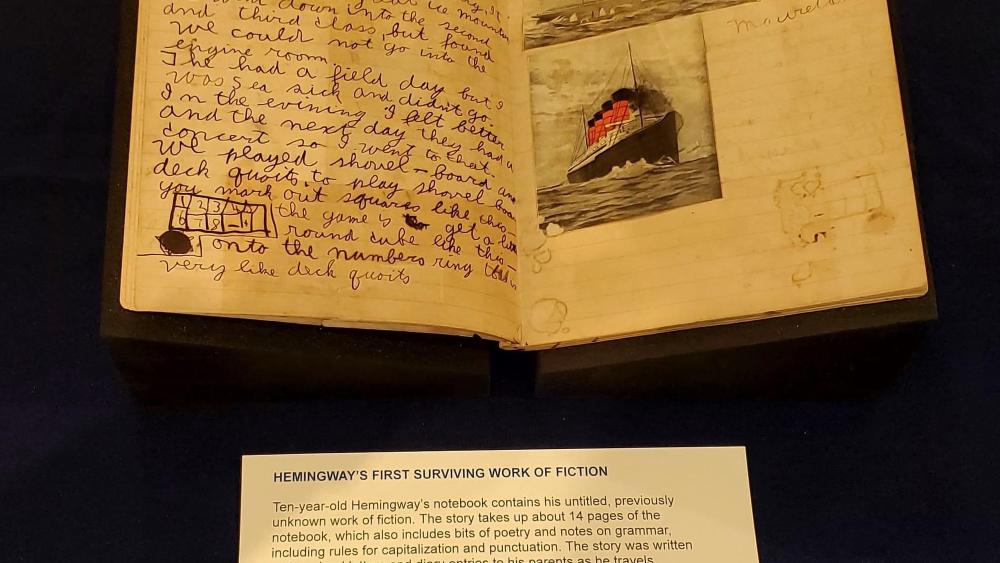 down into the second
and third class, but found
we could not go into the
engine room.
The had a field day but I
was sea sick and didn't go.
In the evening I felt better
and the next day they had a
concert so I went to that.
We played shovel-board and
deck quoits, to play shovel boa
you mark out squares like this-
1 2 3
6 7 8
the game is get a
round cube like this-
onto the numbers ring
very like deck quoits
HEMINGWAY'S FIRST SURVIVING WORK OF FICTION
Ten-year-old Hemingway's notebook contains his untitled, previously
unknown work of fiction. The story takes up about 14 pages of the
notebook, which also includes bits of poetry and notes on grammar,
including rules for capitalization and punctuation. The story was written
and diary entries to his parents as he travels